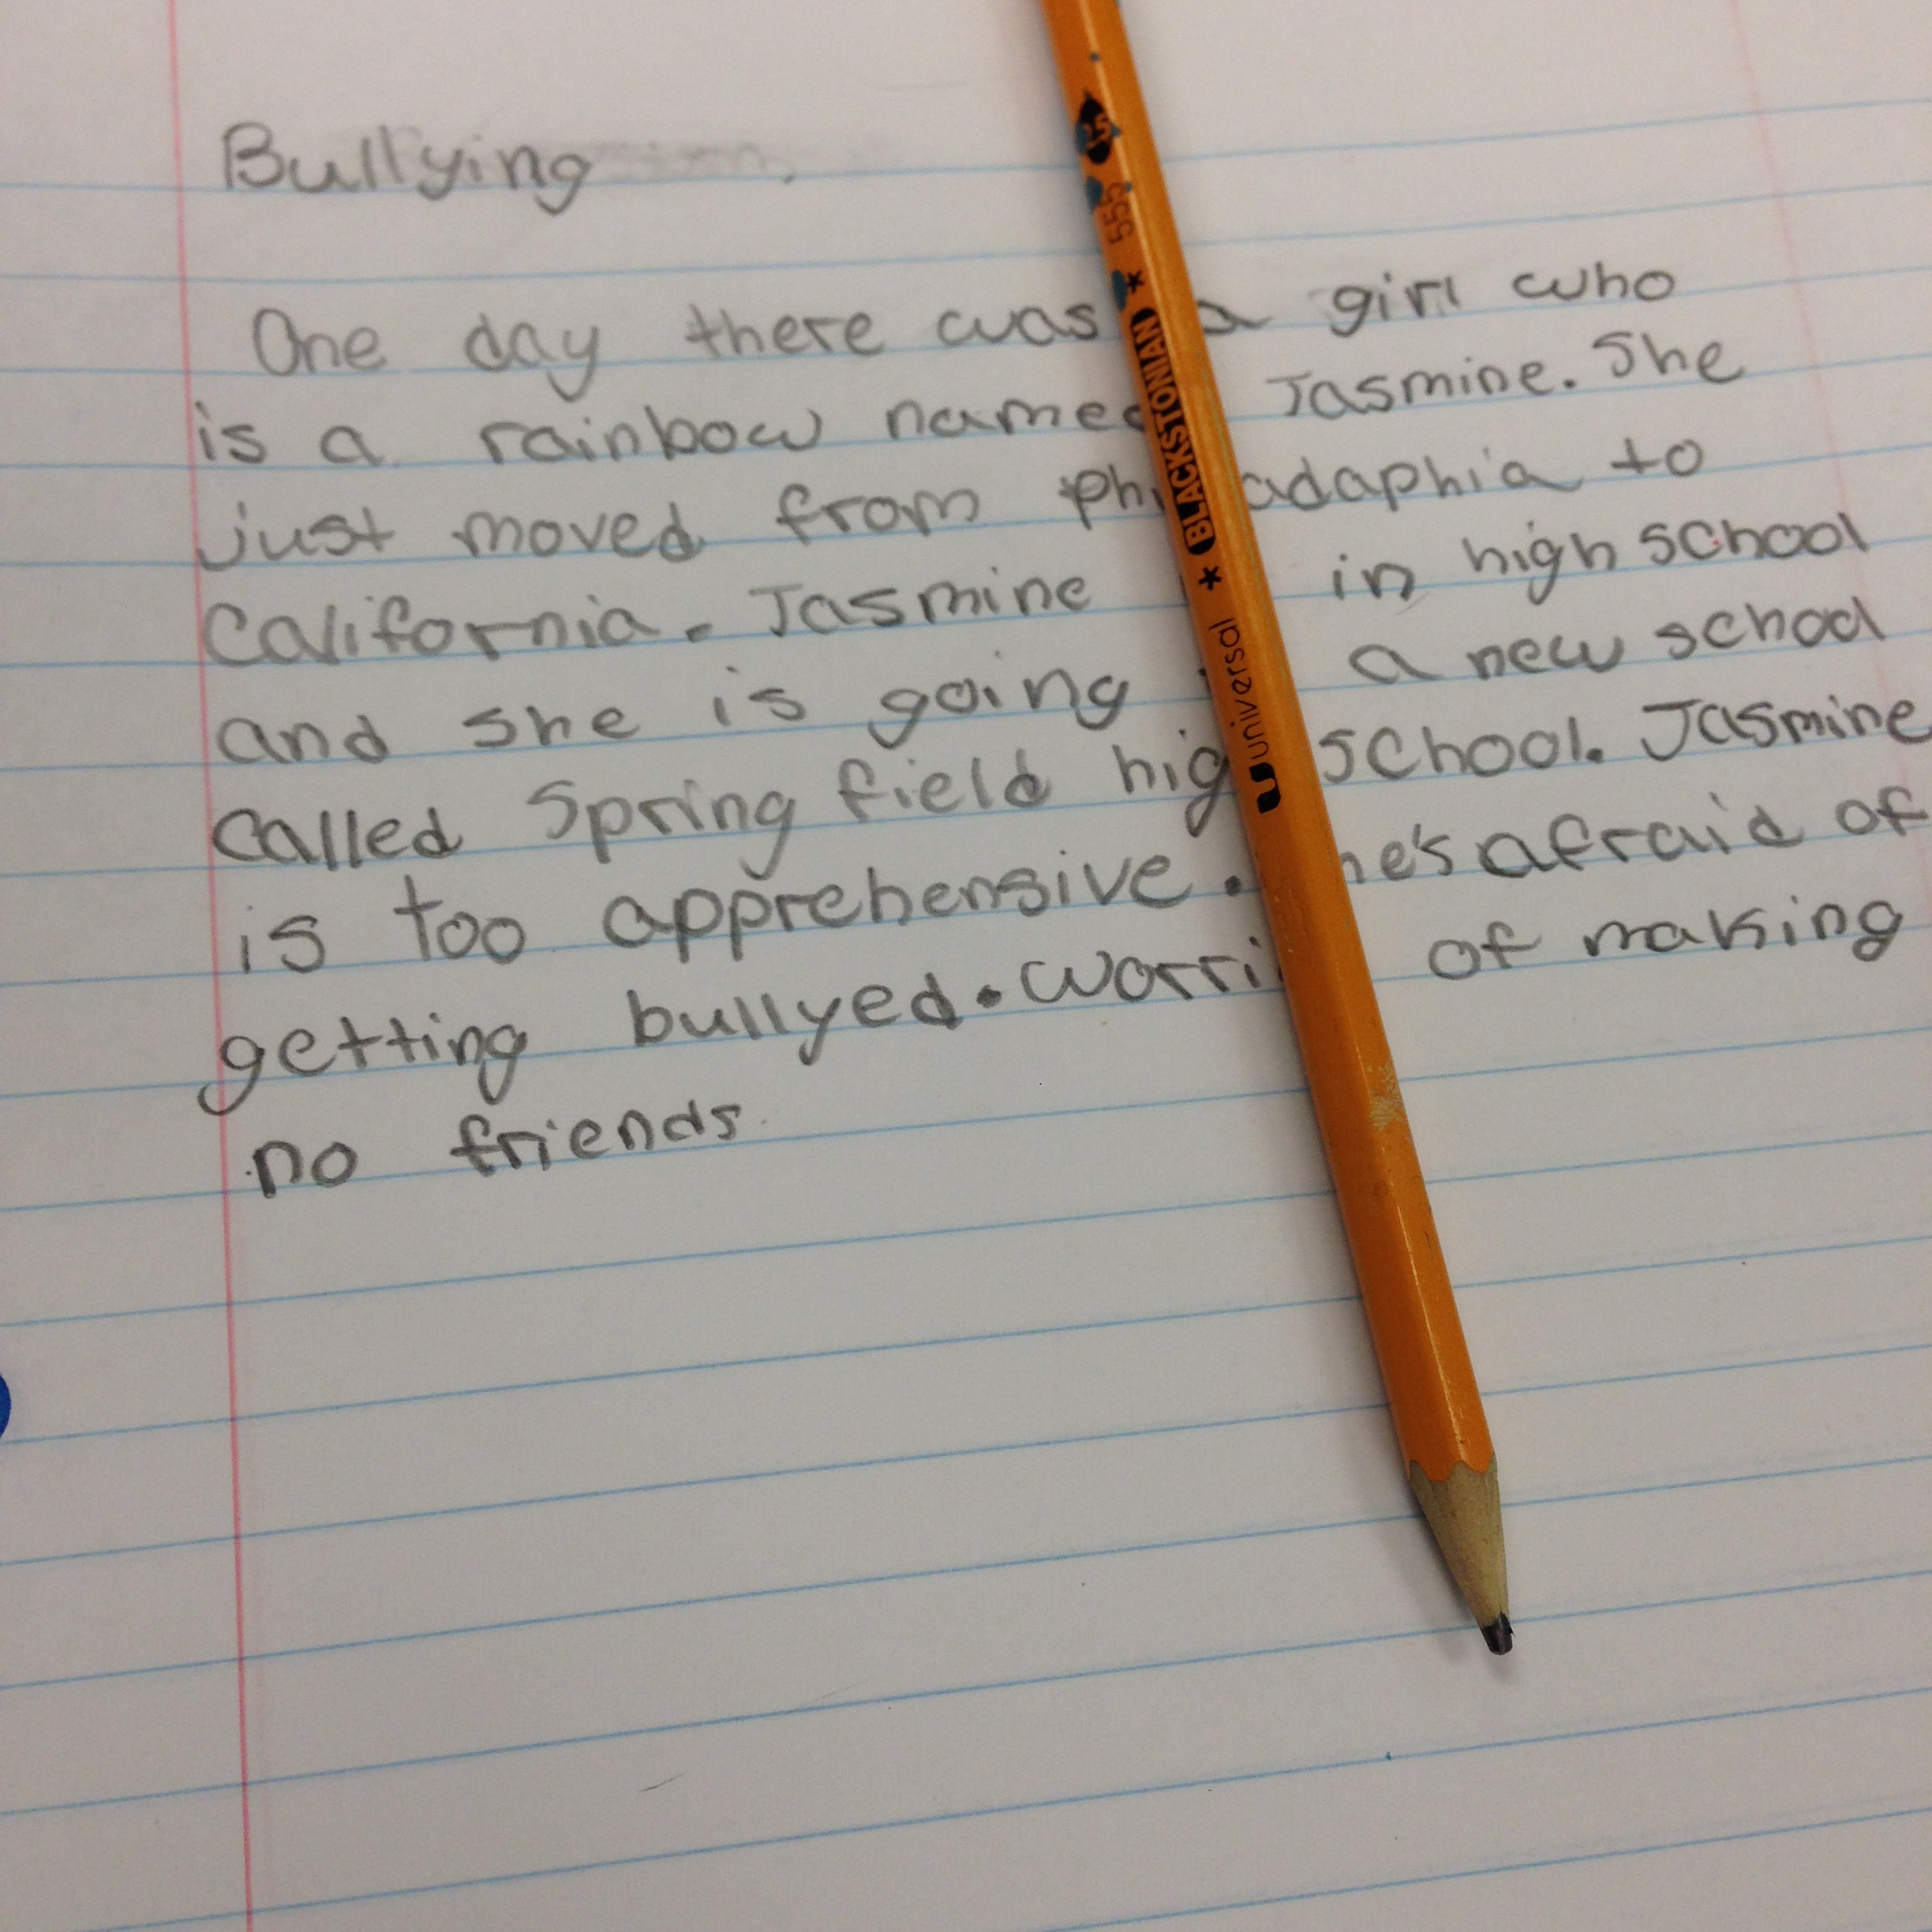 Bullying
One day there was a girl who
is a rainbow named Jasmine. She
just moved from adaphia to
California. Jasmine in high school
and she is going a new school
called Spring field high school. Jasmine
is too apprehensive. afraid of
getting bullyed. of making
no friends
555
BLACKSTONIAN
universal